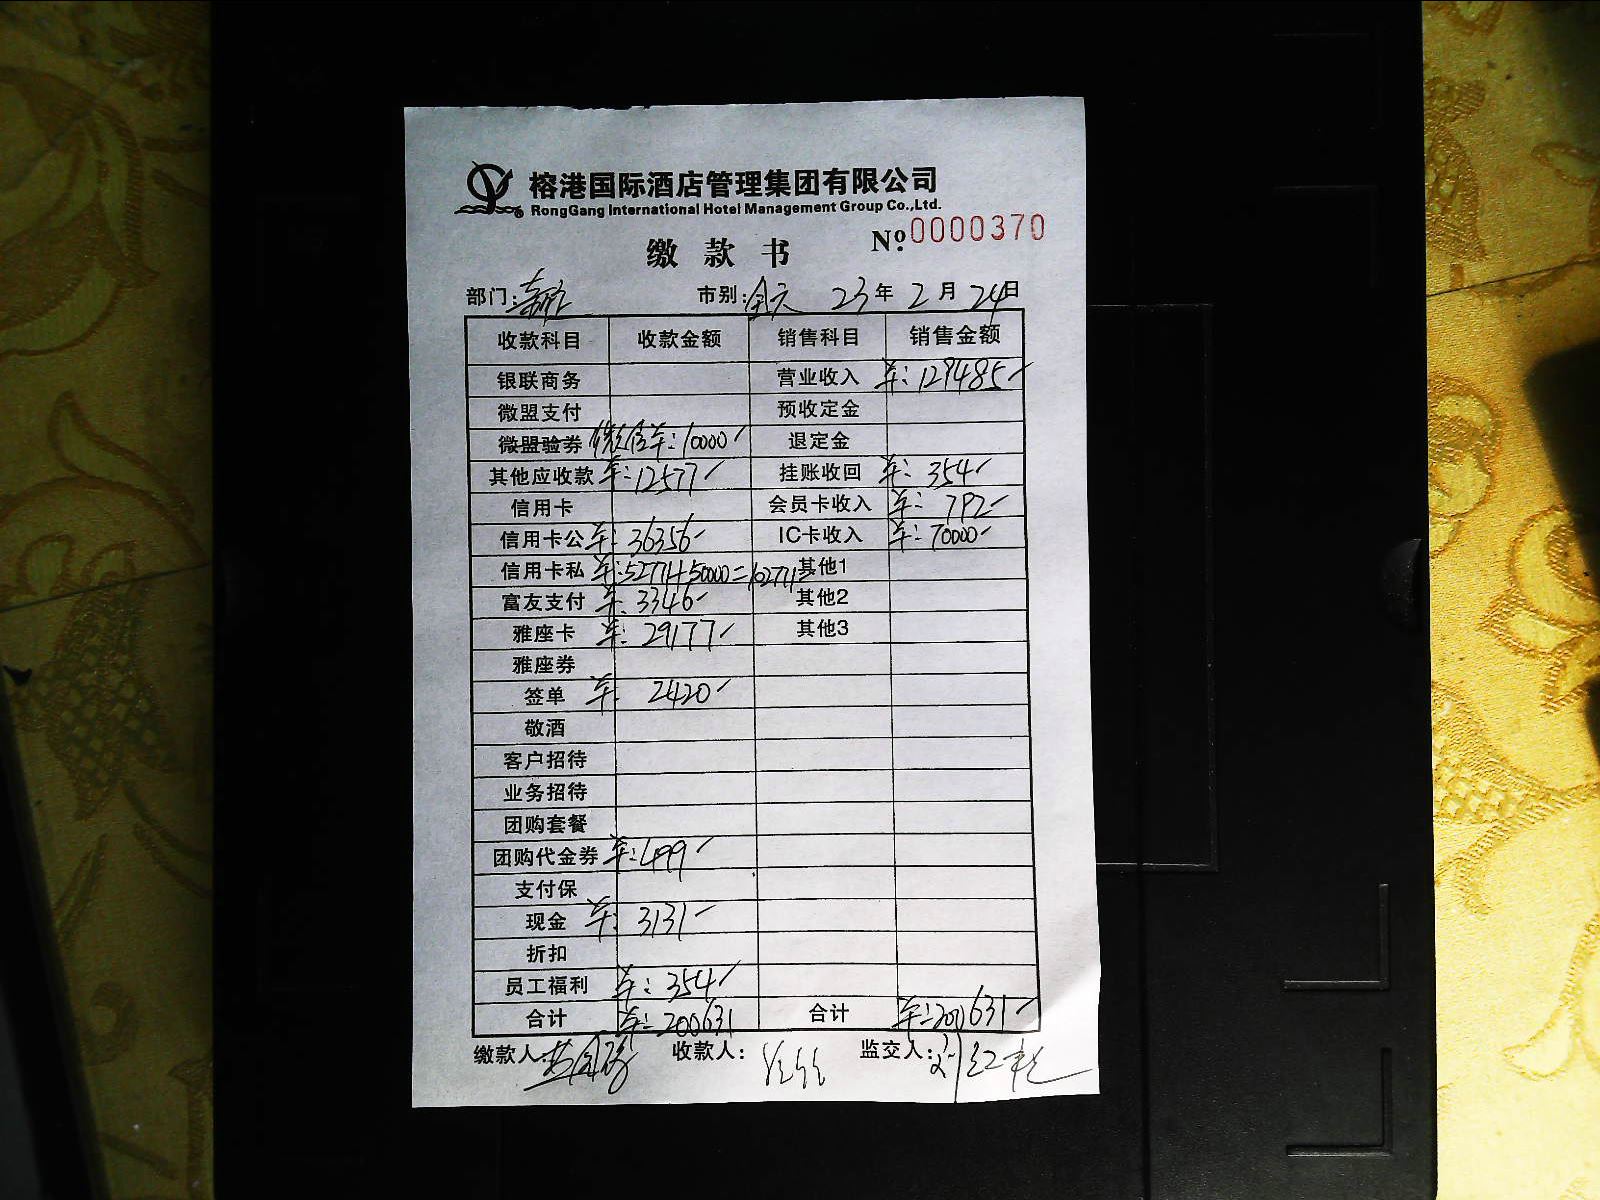 榕港国际酒店管理集团有限公司
RongGang International Hotel Management Group Co.,Ltd.
缴款书 Nº 0000370
部门: 市别:全天 23年2月24日
收款科目 收款金额 销售科目 销售金额
银联商务 营业收入 ¥:129485
微盟支付 预收定金
微盟验券 微信¥:10000 退定金
其他应收款 ¥:12577 挂账收回 ¥:354
信用卡 会员卡收入 ¥:792
信用卡公 ¥:36356 IC卡收入 ¥:70000
信用卡私 ¥:52771+50000=102771 其他1
富友支付 ¥:3346 其他2
雅座卡 ¥:29177 其他3
雅座券
签单 ¥:2420
敬酒
客户招待
业务招待
团购套餐
团购代金券 ¥:499
支付保
现金 ¥:3131
折扣
员工福利 ¥:354
合计 ¥:200631 合计 ¥:200631
缴款人: 收款人: 监交人: